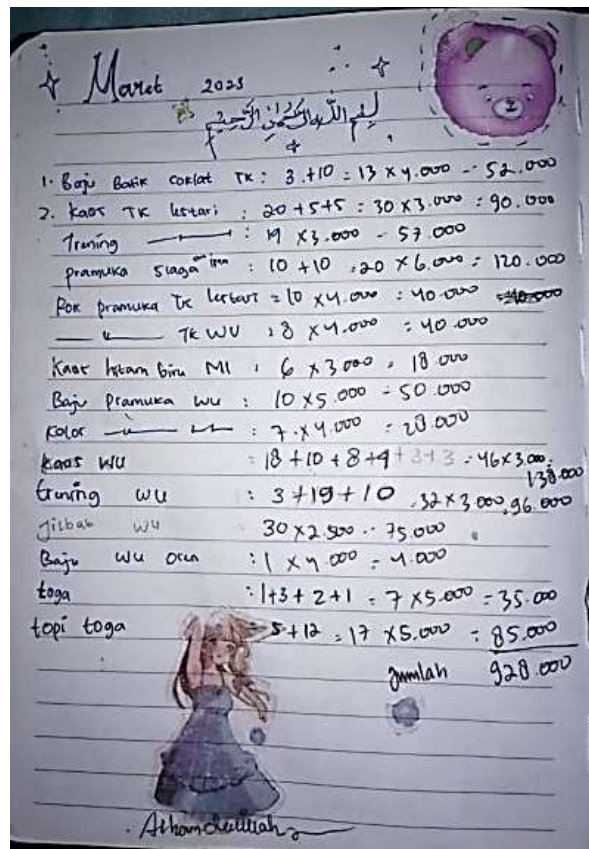 Maret 2023
بسم الله الرحمن الرحيم
1. Baju Batik Coklat TK : 3 + 10 = 13 x 4.000 = 52.000
2. Kaos TK lestari : 20 + 5 + 5 : 30 x 3.000 : 90.000
Trening : 19 x 3.000 = 57.000
pramuka siaga : 10 + 10 = 20 x 6.000 = 120.000
Rok pramuka TK lestari = 10 x 4.000 : 40.000
TK WU : 8 x 4.000 = 40.000
Kaos hitam biru MI : 6 x 3000 = 18.000
Baju Pramuka WU : 10 x 5.000 = 50.000
Kolor : 7 x 4.000 = 28.000
Kaos WU = 18 + 10 + 8 + 4 + 3 + 3 = 46 x 3.000 : 138.000
trening WU : 3 + 19 + 10 . 32 x 3.000 . 96.000
Jilbab WU 30 x 2.500 = 75.000
Baju WU Oren : 1 x 4.000 = 4.000
toga : 1 + 3 + 2 + 1 = 7 x 5.000 = 35.000
topi toga 5 + 12 = 17 x 5.000 = 85.000
Jumlah 928.000